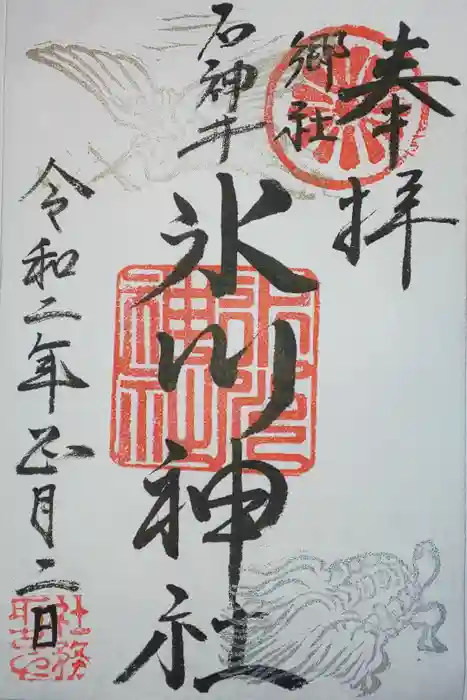 奉拝
郷社
石神井
氷川神社
令和二年正月二日
氷川神社
社務所